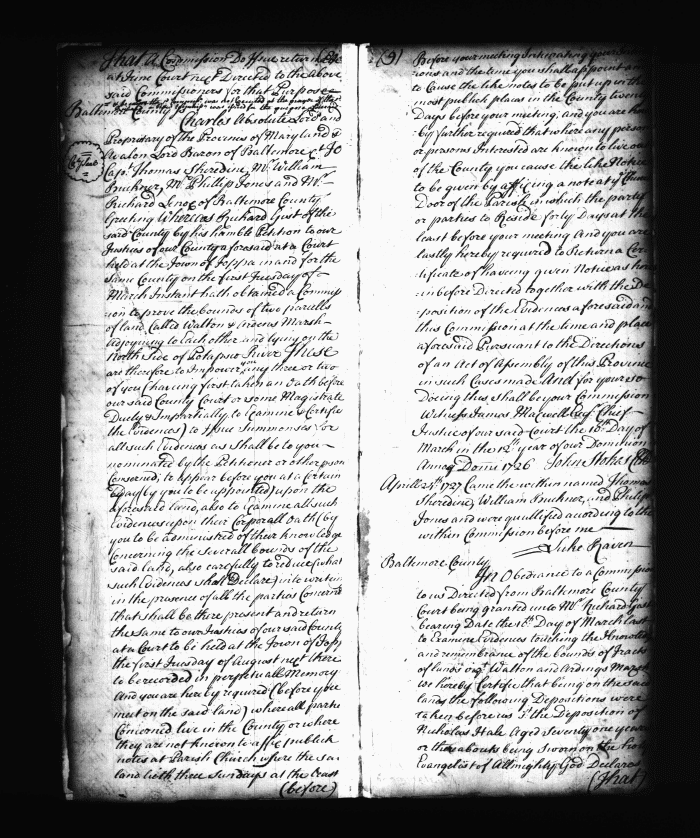 That a Commission Do Issue return
at June Court next Directed to the above
said Commissioners for that Purpose
Baltimore County
Charles Absolute Lord and
Propriary of the Province of Maryland &
Avalon Lord Baron of Baltimore &c To
Capt. Thomas Sheredine, Mr. William
Buckner, Mr. Phillip Jones and Mr.
Richard Lenox of Baltimore County
Greeting Whereas Richard Gist of the
said County by his humble Petition to our
Justices of our County aforesaid at a Court
held at the Town of Joppa in and for the
same County on the first Tuesday of
March Instant hath obtained a Commiss
ion to prove the bounds of two parcells
of land Called Walton & Ardens Marsh
adjoyning to Each other and lying on the
North Side of Potapsco River These
are therefore to Impower you any three or two
of you (having first taken an Oath before
our said County Court or some Magistrate
Duely & Impartially to Examine & Certifie
the Evidences) to Issue Summonses for
all such Evidences as shall be to you
nominated by the Petitioner or other pson
Concerned, to appear before you at a Certain
day (by you to be appointed) upon the
aforesaid land, also to Examine all such
Evidences upon their Corporall Oath (by
you to be administred of their knowledge
Concerning the severall bounds of the
said land, also carefully to reduce (what
such Evidences shall Declare) into writein
in the presence of all the parties Concernd
that shall be there present and return
the same to our Justices of our said County
at a Court to be held at the Town of Jopp
the first Tuesday of August next there
to be recorded in perpetuall Memory
And you are hereby required (before you
meet on the said land) where all partie
Concerned live in the County or where
they are not known to affix publick
notes at Parish Church where the sa
land lieth three Sundays at the least
(before)
(9)
Before your meeting Intimating your
and the time you shall appoint
to Cause the like notes to be put up in the
most publick places in the County twen
Days before your meeting, and you are he
by further required that where any person
or persons Interested are known to live out
of the County you cause the like Notice
to be given by affixing a note at ye Church
Door of the Parish in which the party
or parties to Reside forty Days at the
least before your meeting And you are
lastly hereby required to Return a Cer
tificate of having given Notice as her
inbefore Directed together with the De
position of the Evidences aforesaid and
this Commission at the time and place
aforesaid Persuant to the Directions
of an Act of Assembly of this Province
in such Cases made And for your so
Doeing this shall be your Commission
Witness James Maxwell Chief
Justice of our said Court the 10th Day of
March in the 12th year of our Dominion
Annoq Domi 1726 John Stokes
Aprill 24th 1727 Came the within named Thomas
Sheredine, William Buckner, and Philip
Jones and were quallified according to the
within Commission before me
Luke Raven
Baltimore County
In Obediance to a Commission
to us Directed from Baltimore County
Court being granted unto Mr. Richard Gist
bearing Date the 10th Day of March last
to Examine Evidences touching the Knowledg
and remembrance of the bounds of Tracts
of land vizt Walton and Ardings Marsh
We hereby Certifie that being on the said
lands the following Depositions were
taken before us Vizt the Deposition of
Nicholas Hale Aged Seventy one years
or thereabouts being Sworn on the holy
Evangelist of Allmighty God Declares
(That)